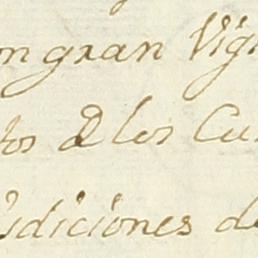 on gran Vig
tos D los Cu
udiciones de